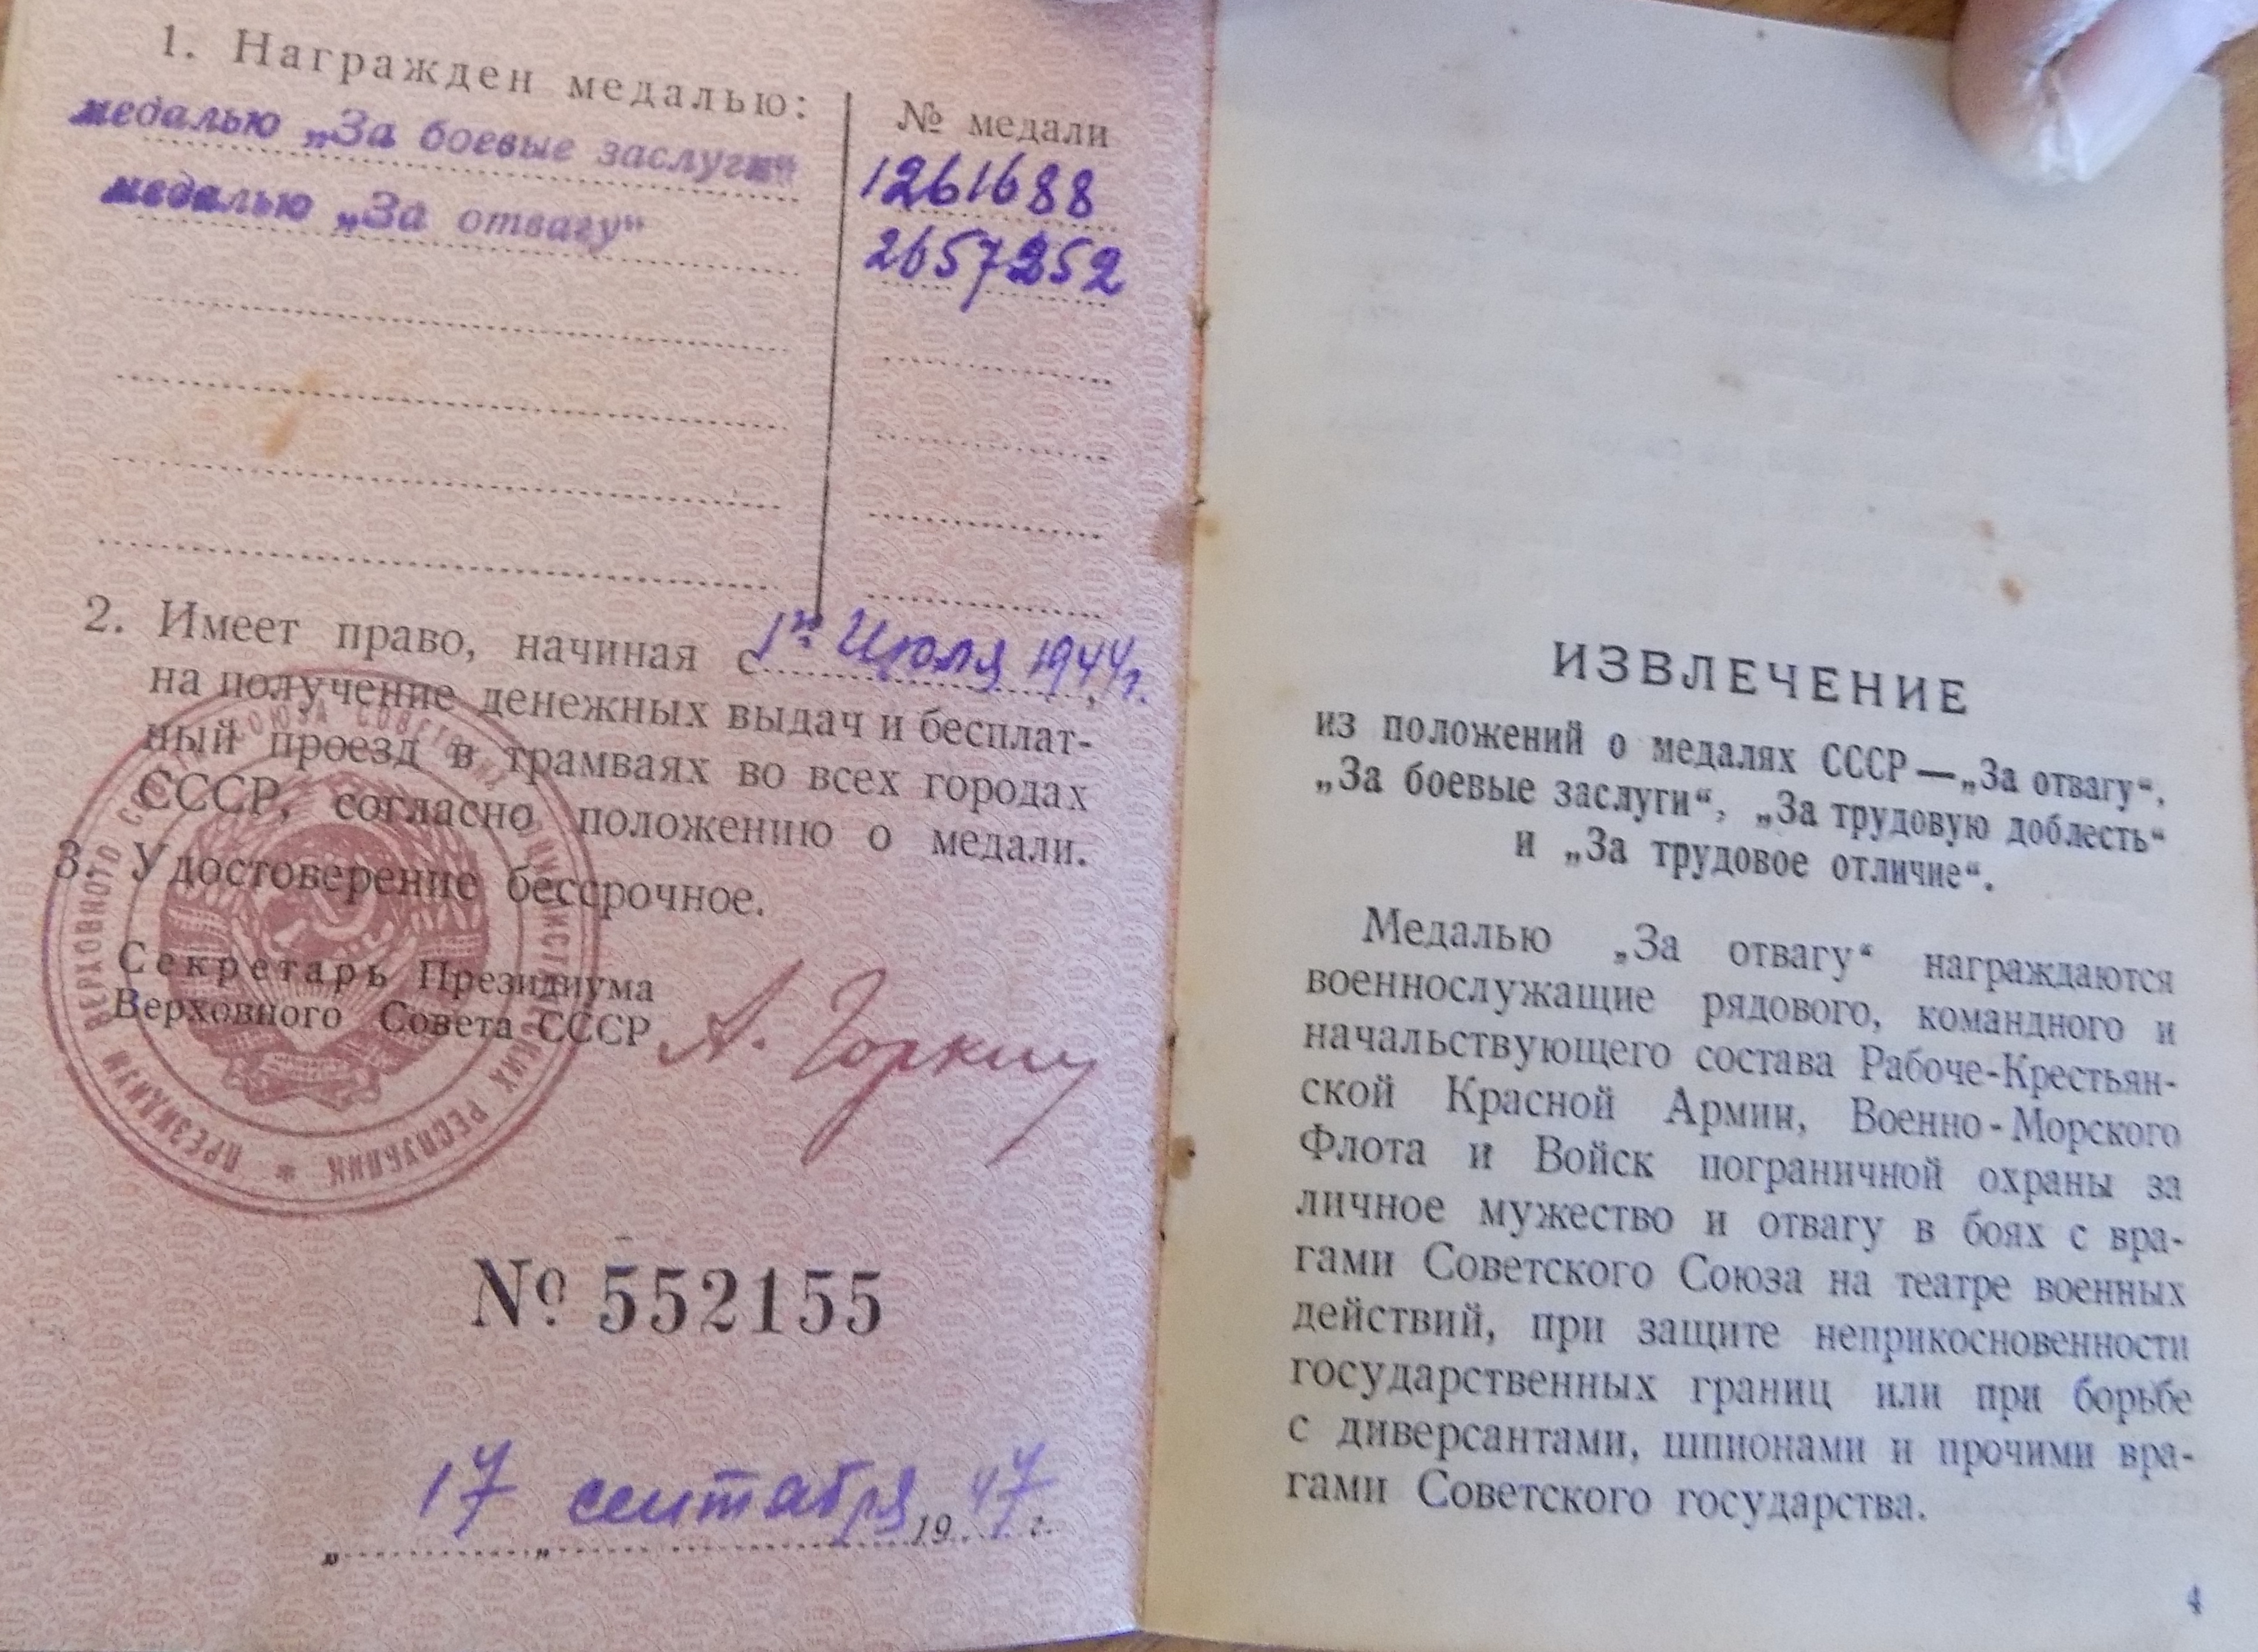 1. Награжден медалью:
№ медали
медалью „За боевые заслуги“
1261688
медалью „За отвагу“
2657252
2. Имеет право, начиная с 1го Июля 1944г.,
на получение денежных выдач и бесплат-
ный проезд в трамваях во всех городах
СССР, согласно положению о медали.
3. Удостоверение бессрочное.
Секретарь Президиума
Верховного Совета СССР
А. Горкин
ПРЕЗИДИУМ ВЕРХОВНОГО СОВЕТА СОЮЗА СОВЕТСКИХ СОЦИАЛИСТИЧЕСКИХ РЕСПУБЛИК *
№ 552155
„17“ сентября 1947 г.
ИЗВЛЕЧЕНИЕ
из положений о медалях СССР—„За отвагу“,
„За боевые заслуги“, „За трудовую доблесть“
и „За трудовое отличие“.
Медалью „За отвагу“ награждаются
военнослужащие рядового, командного и
начальствующего состава Рабоче-Крестьян-
ской Красной Армии, Военно-Морского
Флота и Войск пограничной охраны за
личное мужество и отвагу в боях с вра-
гами Советского Союза на театре военных
действий, при защите неприкосновенности
государственных границ или при борьбе
с диверсантами, шпионами и прочими вра-
гами Советского государства.
4